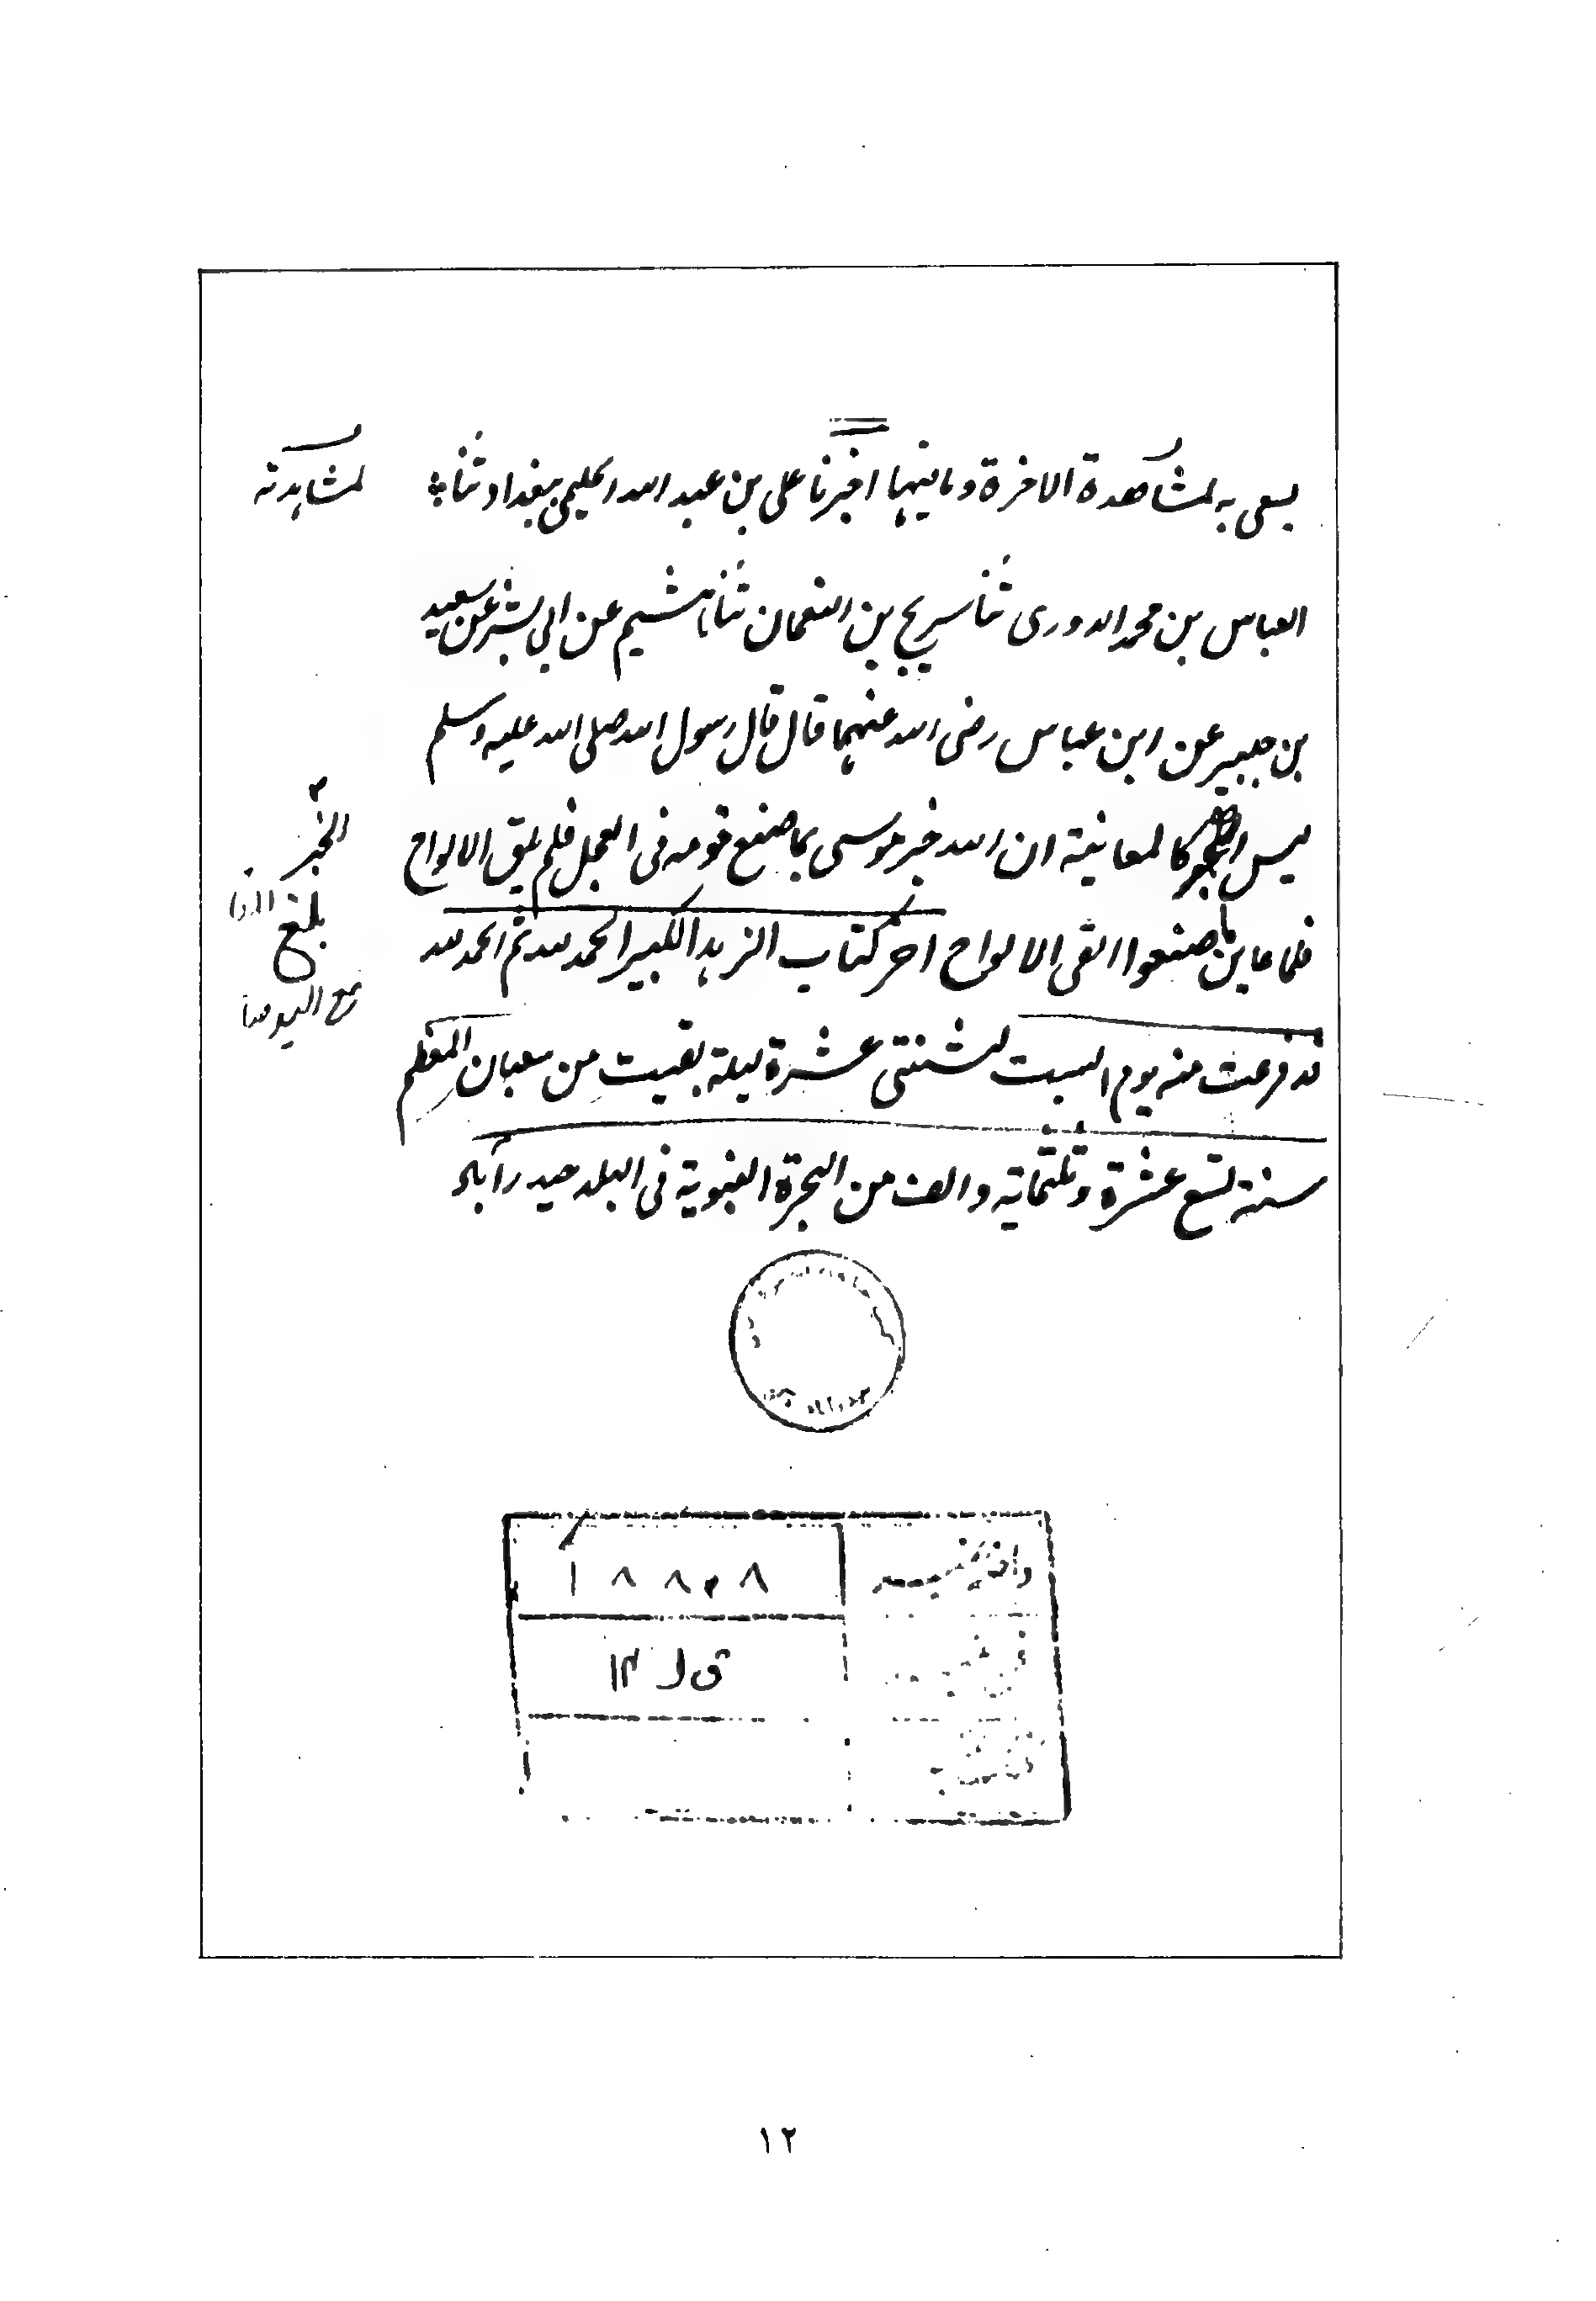 يسعى به لمشاهدة الاخرة وما فيها اخبرنا على بن عبد الله الحكيمى ببغداد ثنا
لمشاهدته
العباس بن محمد الدورى ثنا سريج بن النعمان ثنا هشيم عن ابي بشر عن سعيد
بن جبير عن ابن عباس رضى الله عنهما قال قال رسول الله صلى الله عليه وسلم
ليس الخبر كالمعاينة ان الله خبر موسى بما صنع قومه فى العجل فلم يلق الالواح
الخبر
فلما عاين ما صنعوا القى الالواح اخر كتاب الزهد الكبير الحمد لله ثم الحمد لله
بلغ
قد فرغت منه يوم السبت لثنتى عشرة ليلة بقيت من شعبان المعظم
سنة تسع عشرة وثلثماية والف من الهجرة النبوية فى البلد حيدرآباد
داخلہ نمبر
١٨٨٠٨
١٢